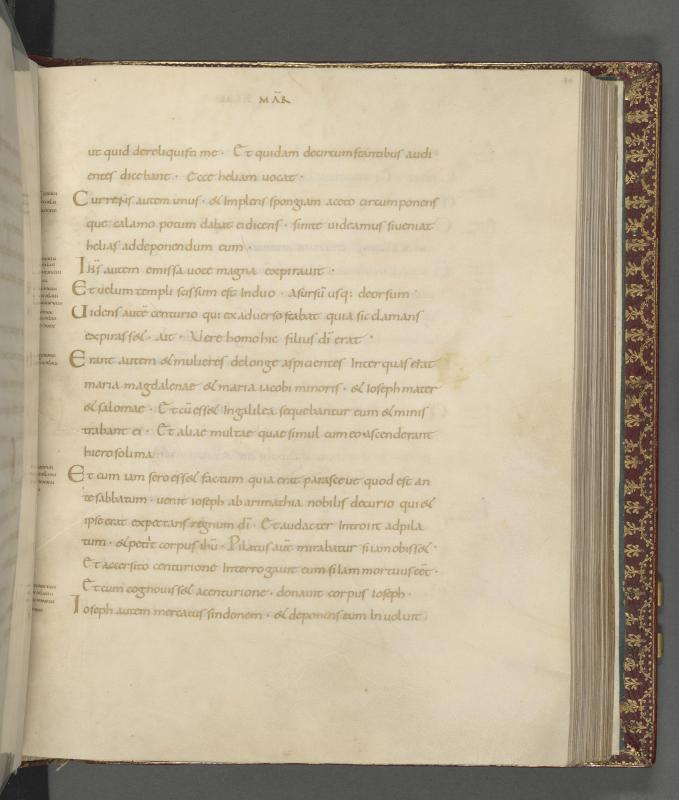 MAR̄
ut quid dereliquisti me · Et quidam decircumstantibus audi
entes dicebant · Ecce heliam uocat ·
Currens autem unus · & Implens spongiam aceto circumponens
que calamo potum dabat ei dicens · sinite uideamus si ueniat
helias addeponendum eum ·
Ihs̄ autem emissa uoce magna expirauit ·
Et uelum templi scissum est Induo · Asursū usq; deorsum ·
Uidens autē centurio qui exaduerso stabat quia sic clamans
expirass& · Ait · Uere homo hic filius dī erat ·
Erant autem & mulieres delonge aspicientes Inter quas erat
maria magdalenae & maria iacobi minoris · & Ioseph mater
& salomae · Et cū ess& Ingalilea sequebantur eum & minis
trabant ei · Et aliae multae quae simul cum eo ascenderant
hierosolima
Et cum iam sero ess& factum quia erat parasceue quod est an
te sabbatum · uenit ioseph ab arimathia nobilis decurio qui &
ipse erat expectans regnum dī · Et audacter Introiit adpila
tum · & petiit corpus ihū · Pilatus aūt mirabatur si iam obiss& ·
Et accersito centurione Interrogauit eum si iam mortuus eēt ·
Et cum cognouiss& acenturione · donauit corpus ioseph ·
Ioseph autem mercatus sindonem · & deponens eum Inuoluit